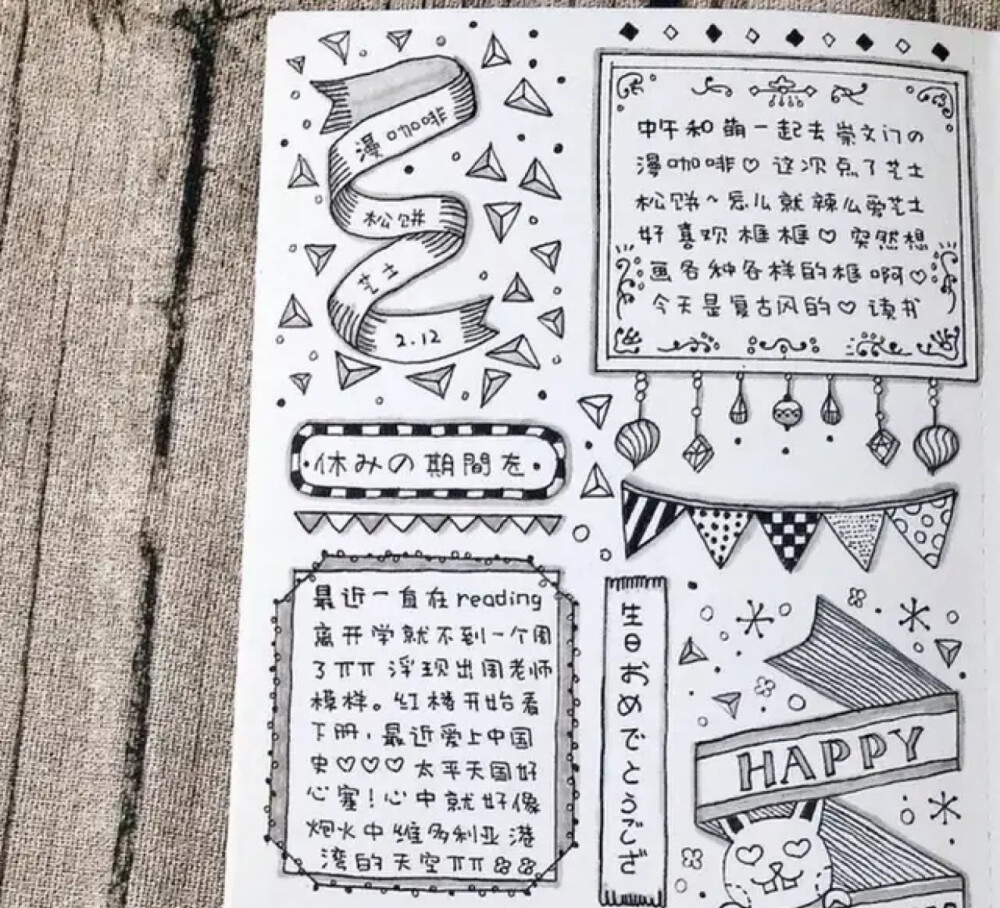 漫咖啡
松饼
芝士
2.12
中午和萌一起去崇文门の
漫咖啡♡这次点了芝士
松饼~怎么就辣么爱芝士
好喜欢框框♡突然想
画各种各样的框啊♡
今天是复古风的♡读书
休みの期間を
最近一直在reading
离开学就不到一个周
了ππ 浮现出周老师
模样。红楼开始看
下册,最近爱上中国
史♡♡♡太平天国好
心塞!心中就好像
炮火中维多利亚港
湾的天空ππ
生日おめでとうござ
HAPPY